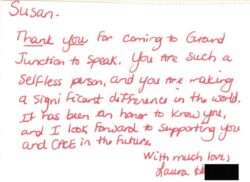 Susan.
Thank you for coming to Grand
Junction to speak. You are such a
selfless person, and you are making
a significant difference in the world.
It has been an honor to know you,
and I look forward to supporting you
and CACE in the future.
With much love,
Laura